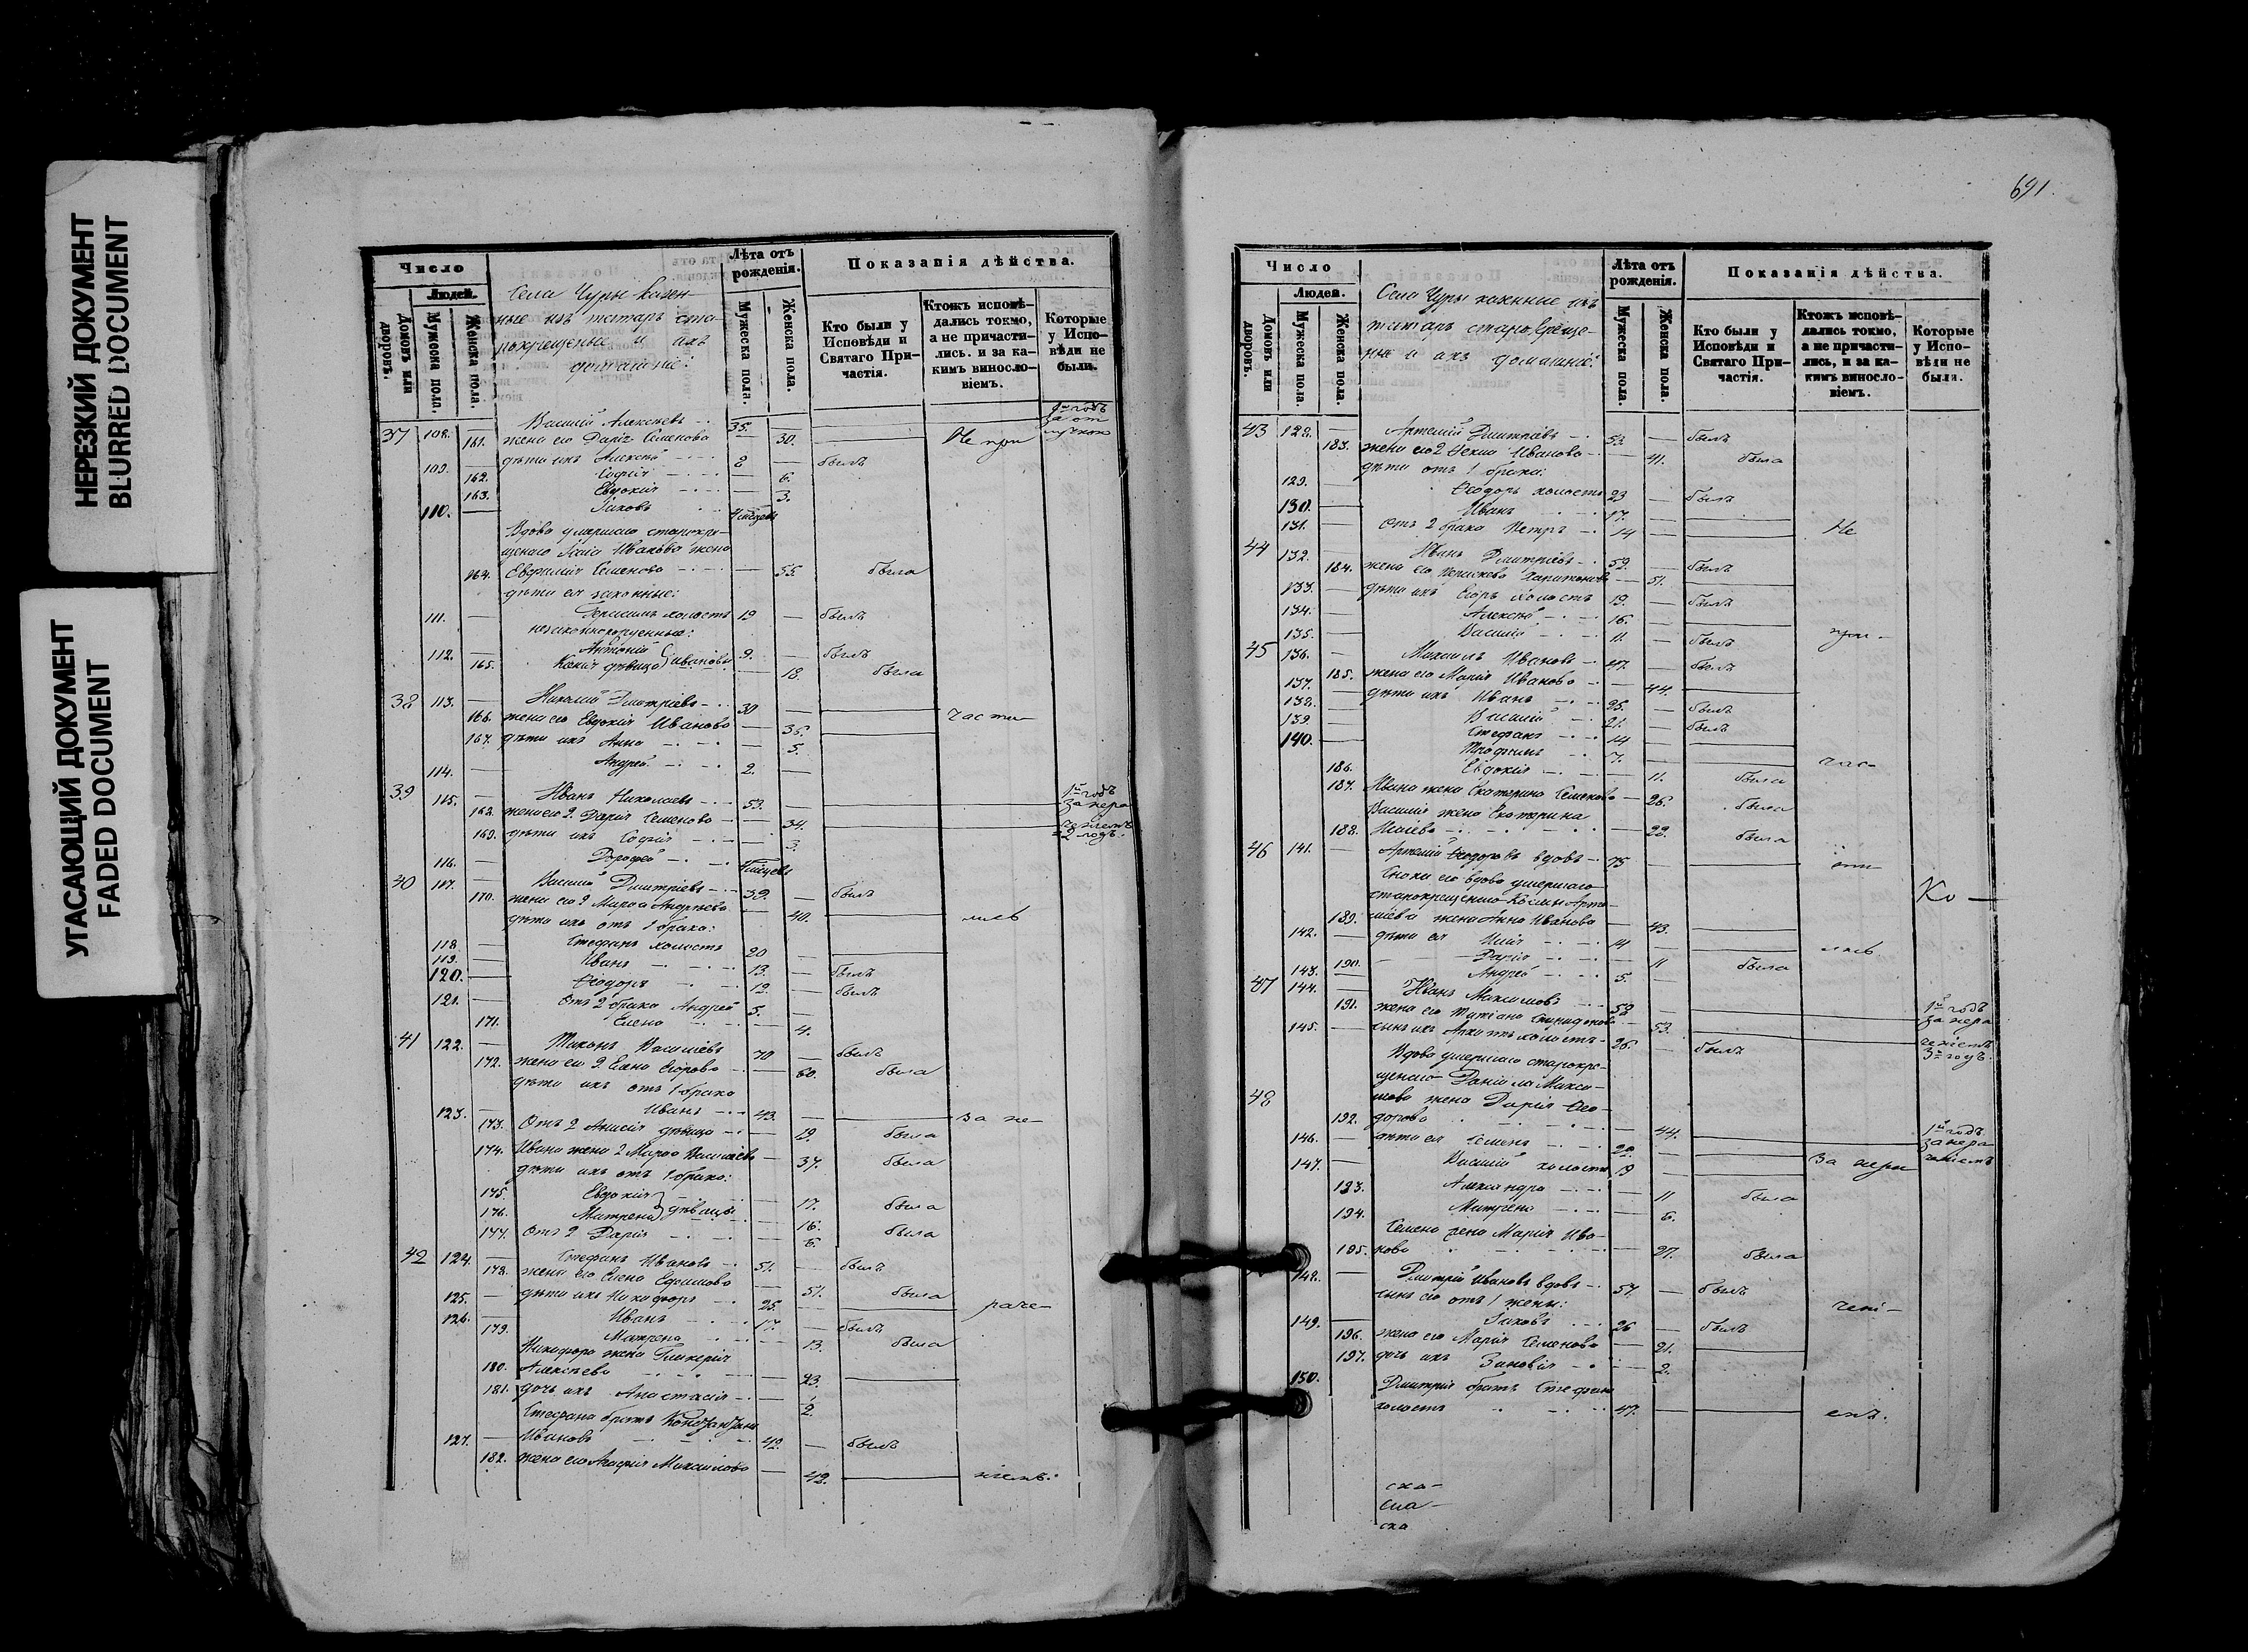 НЕРЕЗКИЙ ДОКУМЕНТ
BLURRED DOCUMENT
УГАСАЮЩИЙ ДОКУМЕНТ
FADED DOCUMENT
Число
Людей.
Домовъ или дворовъ.
Мужеска пола.
Женска пола.
Села Чуры казен-
ные изъ татаръ ста-
рокрещеные и ихъ
домашніе:
Лѣта отъ рожденія.
Мужеска пола.
Женска пола.
Показанія дѣйства.
Кто были у Исповѣди и Святаго При-частія.
Ктожъ исповѣ-дались токмо, а не причасти-лись. и за ка-кимъ винослo-віемъ.
Которые у Испо-вѣди не были.
37 108. — Василій Алексѣевъ 35. — 1й годъ за от
161. жена его Дарія Семенова — 30. Не при
109. — дѣти ихъ Алексѣй 8 — былъ
162. Софія — 6.
163. Евдокія — 3.
110. — Іаковъ
Вдова умершаго старокре-
щенаго Исаіи Иванова жена
164. Евфимія Семенова — 55. была
дѣти ея законные:
111. — Герасимъ холостъ 19 — былъ
незаконнорожденные:
112. — Антоній 9. — былъ
165. дѣвица Ивановы — 18. была
38 113. — Николай Дмитріевъ 30 —
166. жена его Евдокія Ивановa — 36. части-
167. дѣти ихъ Анна — 5.
114. — Андрей 2. —
39 115. — Иванъ Николаевъ 53. — 1й годъ за нера
168. жена его 2. Дарія Семенова — 34. 2 годъ.
169. дѣти ихъ Софія — 3.
116. — Дорофей
40 117. — Василій Дмитріевъ 39. — былъ
170. жена его 2 Марѳа Андреева — 40. лись
дѣти ихъ отъ 1 брака:
118 — Стефанъ холостъ 20 —
119. — Иванъ 13. — былъ
120. — Ѳеодоръ 12. — былъ
121. — Отъ 2 брака Андрей 5. —
171. Елена — 4.
41 122. — Тихонъ Василіевъ 70 — былъ
172. жена его 2. Елена Егорова — 60. была
дѣти ихъ отъ 1 брака
123. — Иванъ 43. — за не-
173. Отъ 2 Анисія дѣвица — 19. была
174. Ивана жена 2 Марѳа Василіева — 37. была
дѣти ихъ отъ 1 брака:
175. Евдокія — 17. была
176. Матрена дѣвицы — 16. была
177. Отъ 2 Дарія — 6.
42 124. — Стефанъ Ивановъ 51. — былъ
178. жена его Елена Ефимова — 51. была
125. — дѣти ихъ Никифоръ 25. — раче-
126. — Иванъ 17. — былъ
179. Матрена — 13. была
Никифора жена Гликерія
180. Алексѣева — 23.
181. дочь ихъ Анастасія — 2.
Стефана братъ
127. — Ивановъ 42. — былъ
182. жена его Агафія Михаилова — 42. ніемъ.
691.
Число
Людей.
Домовъ или дворовъ.
Мужеска пола.
Женска пола.
Села Чуры казенные изъ
татаръ старокреще-
ные и ихъ домашніе:
Лѣта отъ рожденія.
Мужеска пола.
Женска пола.
Показанія дѣйства.
Кто были у Исповѣди и Святаго При-частія.
Ктожъ исповѣ-дались токмо, а не причасти-лись, и за ка-кимъ винослo-віемъ.
Которые у Испо-вѣди не были.
43 128. — Артемій Дмитріевъ 53. — былъ
183. жена его 2 Иванова — 41. была
дѣти отъ 1 брака:
129. — Ѳеодоръ холостъ 23 — былъ
130. — Иванъ 17. —
131. — Отъ 2 брака Петръ 14 — Не
44 132. — Иванъ Дмитріевъ 52. — былъ
184. жена его Параскева Харитонова — 51.
133. — дѣти ихъ Егоръ холостъ 19. — былъ
134. — Алексѣй 16. —
135. — Василій 11 — былъ при-
45 136. — Михаилъ Ивановъ 47. — былъ
185. жена его Марія Иванова — 44.
137. — дѣти ихъ Иванъ 25. — былъ
138. — Василій 21. — былъ
139. — Стефанъ 14 —
140. — Трофимъ 7. — час-
186. Евдокія — 11. была
187. Ивана жена Екатерина Семенова — 26. была
Василія жена Екатерина
188. — 22. была
46 141. — Артемій Ѳеодоровъ вдовъ 75 — Ко-
Сноха его вдова умершаго
старокрещенаго Космы Арте-
189. міева жена Анна Иванова — 43.
142. — дѣти ея Илія 14 — лись
190. Дарія — 11 была
143. — Андрей 5. —
47 144. — Иванъ Максимовъ 58 — 1й годъ за нера
191. жена его Татіана Спиридонова — 53.
145. — сынъ ихъ холостъ 26. — былъ 3й годъ.
Вдова умершаго старокре-
щенаго Даніила Макси-
48 мова жена Дарія Ѳео-
192. дорова — 44. 1й годъ за нера
146. — дѣти ея Семенъ 29. —
147. — Василій холостъ 19 — за
193. Александра — 11 была
194. Матрена — 6.
Семена жена Марія Ива-
195. нова — 27. была
148. — Дмитрій Ивановъ вдовъ 57. — былъ
сынъ его отъ 1 жены:
149. — Іаковъ 26 — былъ
196. жена его Марія Семенова — 21.
197. дочь ихъ Зиновія — 2.
150. Дмитрія братъ Стефанъ
холостъ 47. — емъ.
ска-
ска